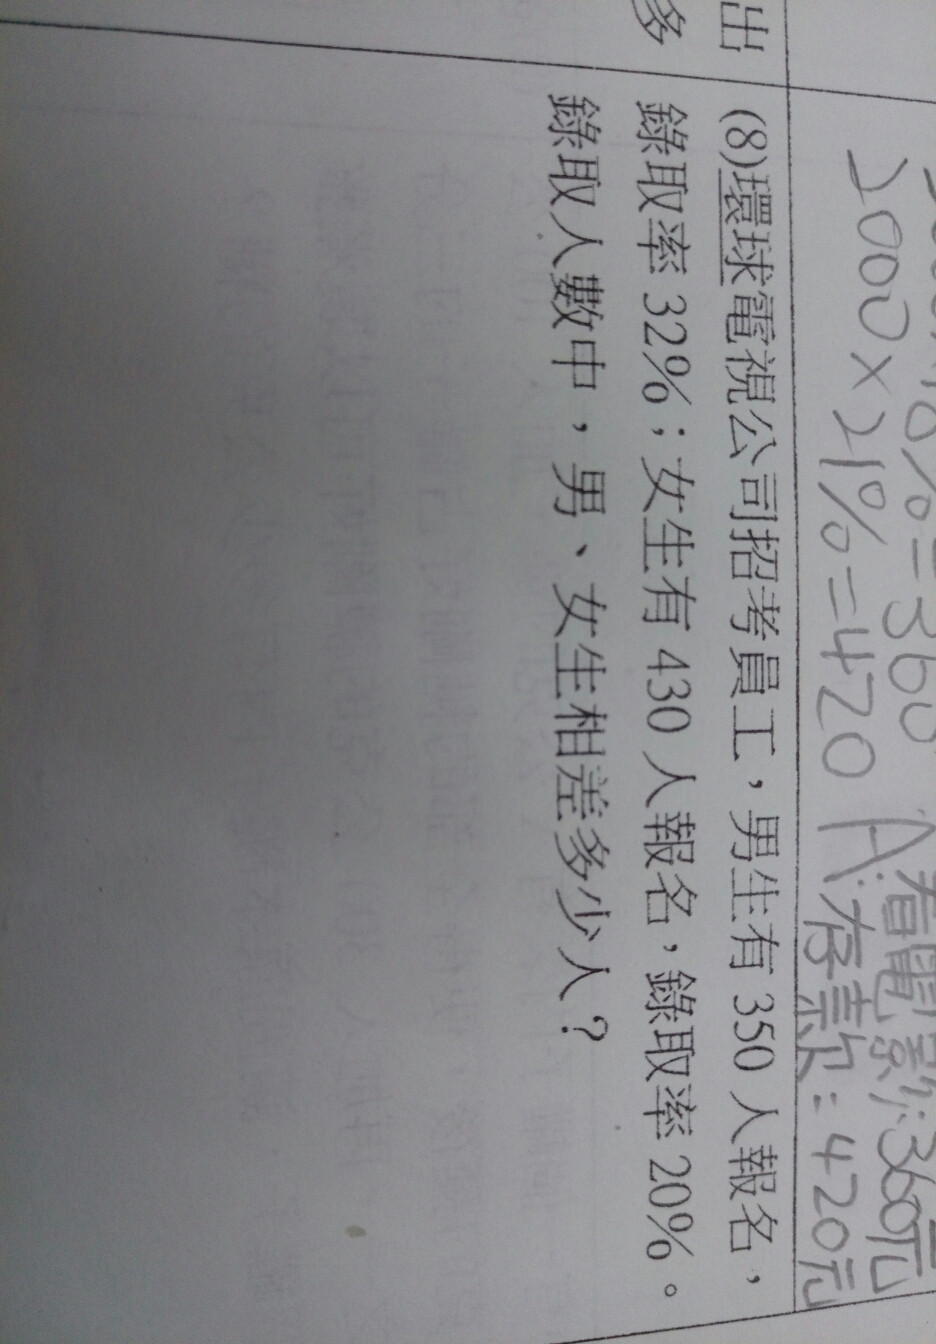 出
多
2000×21%=420 A:存款:420元
看電影:360元
(8)環球電視公司招考員工，男生有 350 人報名，
錄取率 32%；女生有 430 人報名，錄取率 20%。
錄取人數中，男、女生相差多少人？